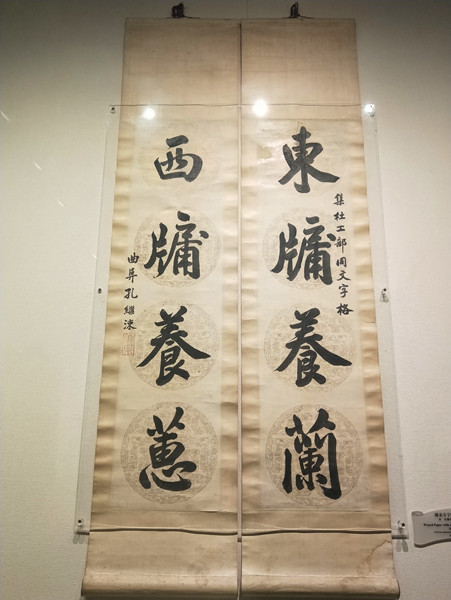 東牗養蘭
集杜工部同文字格
西牗養蕙
曲阜孔繼涑